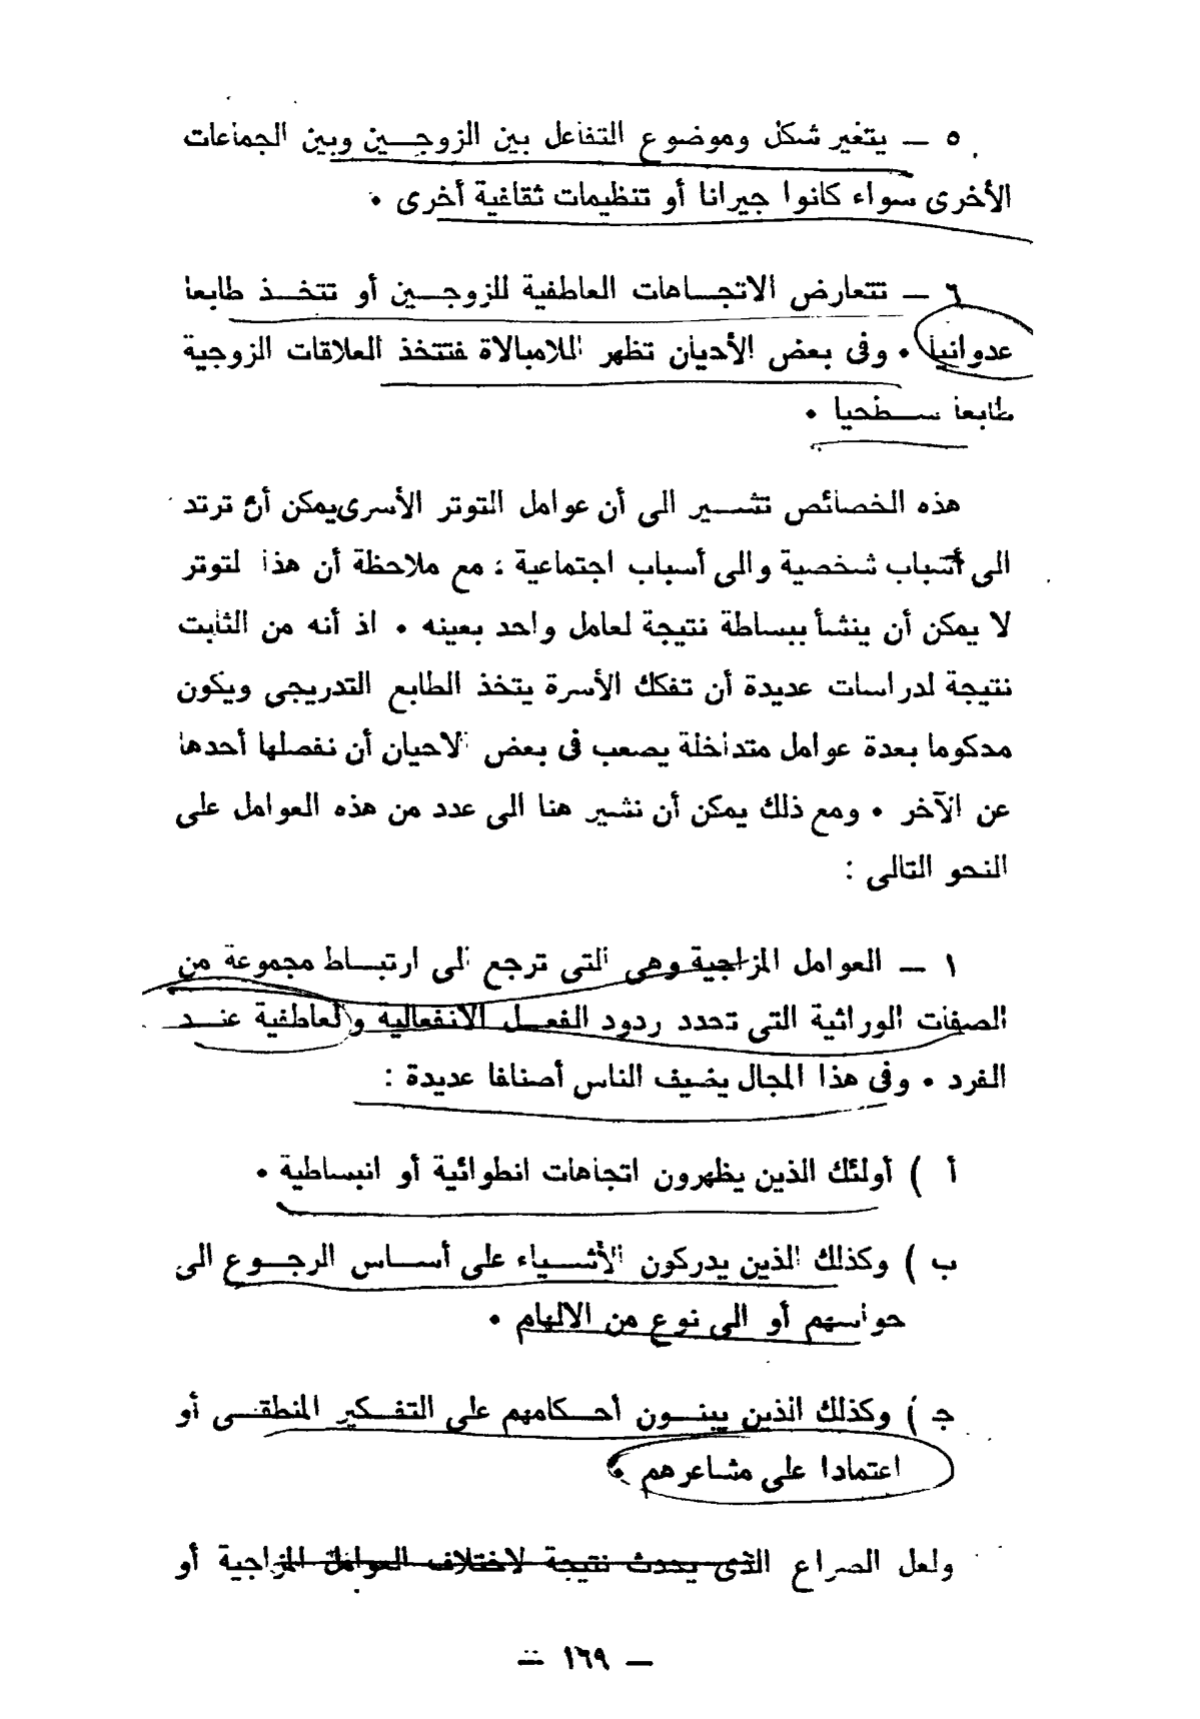 ٥ — يتغير شكل وموضوع التفاعل بين الزوجـــين وبين الجماعات
الأخرى سواء كانوا جيرانا أو تنظيمات ثقافية أخرى ٠
٦ — تتعارض الاتجـــاهات العاطفية للزوجـــين أو تتخـــذ طابعا
عدوانيا ٠ وفى بعض الأحيان تظهر اللامبالاة فتتخذ العلاقات الزوجية
طابعا ســـطحيا ٠
هذه الخصائص تشـــير الى أن عوامل التوتر الأسرى يمكن أن ترتد
الى أسباب شخصية والى أسباب اجتماعية ؛ مع ملاحظة أن هذا لتوتر
لا يمكن أن ينشأ ببساطة نتيجة لعامل واحد بعينه ٠ اذ أنه من الثابت
نتيجة لدراسات عديدة أن تفكك الأسرة يتخذ الطابع التدريجى ويكون
محكوما بعدة عوامل متداخلة يصعب فى بعض الاحيان أن نفصلها أحدها
عن الآخر ٠ ومع ذلك يمكن أن نشير هنا الى عدد من هذه العوامل على
النحو التالى :
١ — العوامل المزاجية وهى التى ترجع الى ارتبـــاط مجموعة من
الصفات الوراثية التى تحدد ردود الفعـــل الانفعالية والعاطفية عنـــد
الفرد ٠ وفى هذا المجال يضيف الناس أصنافا عديدة :
أ ) أولئك الذين يظهرون اتجاهات انطوائية أو انبساطية ٠
ب ) وكذلك الذين يدركون الأشـــياء على أســـاس الرجـــوع الى
حواسهم أو الى نوع من الالهام ٠
جـ ) وكذلك الذين يبنـــون أحـــكامهم على التفـــكير المنطقـــى أو
اعتمادا على مشاعرهم ٠
ولعل الصراع الذى يحدث نتيجة لاختلاف العوامل المزاجية أو
— ١٦٩ —